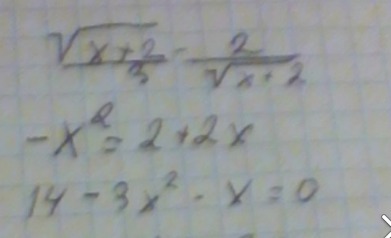 √(x+2)/3 - 2/√(x+2)
-x² = 2+2x
14 - 3x² - x = 0